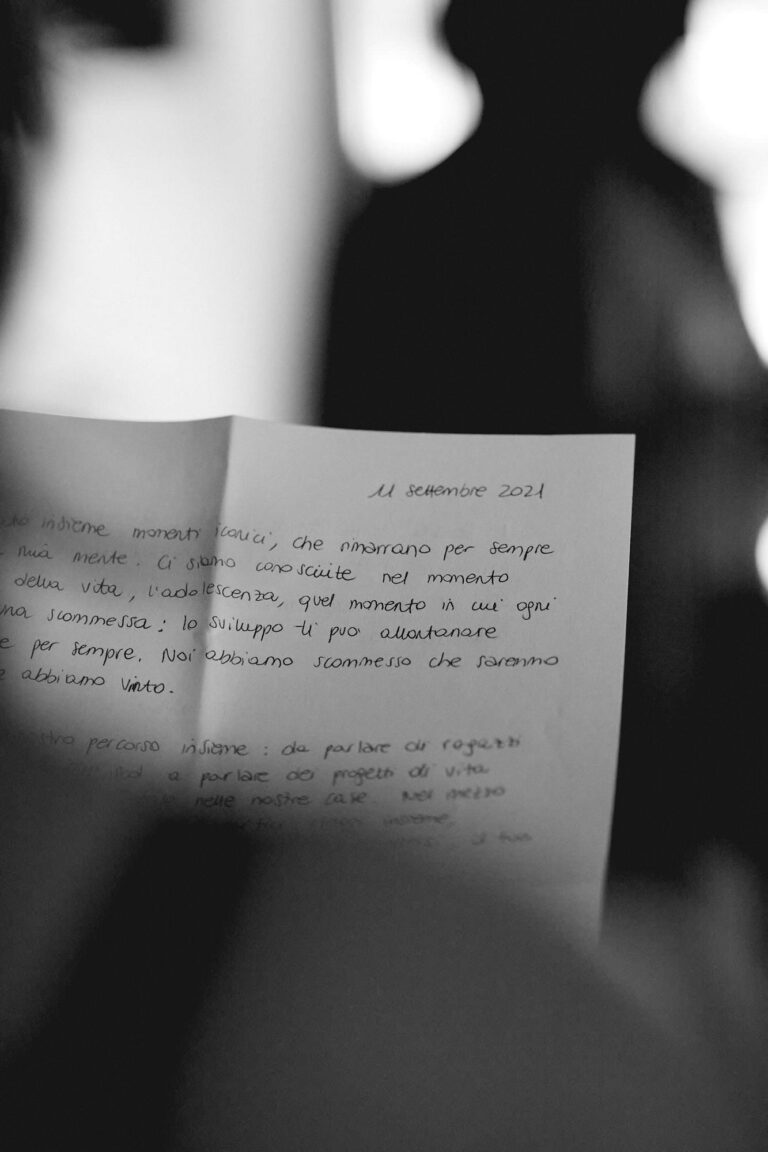 11 settembre 2021
insieme momenti iconici, che rimarrano per sempre
mia mente. Ci siamo conosciute nel momento
della vita, l'adolescenza, quel momento in cui ogni
scommessa: lo sviluppo ti può allontanare
per sempre. Noi abbiamo scommesso che saremmo
abbiamo vinto.
percorso insieme: da parlare di ragazzi
a parlare dei progetti di vita
nelle nostre case. Nel mezzo
insieme,